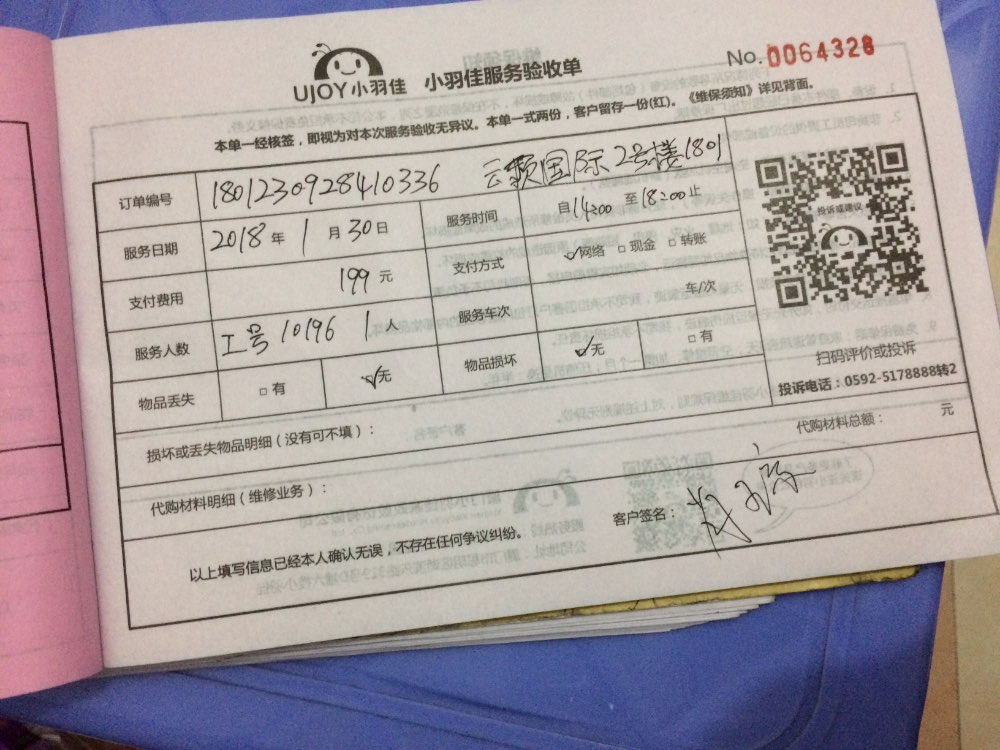 UJOY小羽佳 小羽佳服务验收单
No.0064328
本单一经核签，即视为对本次服务验收无异议。本单一式两份，客户留存一份(红)。《维保须知》详见背面。
订单编号 1801230928410336 云顶国际2号楼1801
服务日期 2018年1月30日 服务时间 自14:00至18:00止
支付费用 199元 支付方式 ☑网络 □现金 □转账
服务人数 工号10196 1人 服务车次 车/次
物品丢失 □有 ☑无 物品损坏 ☑无 □有
投诉或建议
扫码评价或投诉
投诉电话：0592-5178888转2
损坏或丢失物品明细（没有可不填）：
代购材料总额： 元
代购材料明细（维修业务）：
客户签名：
以上填写信息已经本人确认无误，不存在任何争议纠纷。